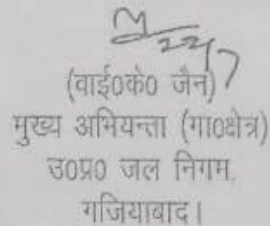 22/7
(वाई०के० जैन)
मुख्य अभियन्ता (गा०क्षेत्र)
उ०प्र० जल निगम,
गजियाबाद।